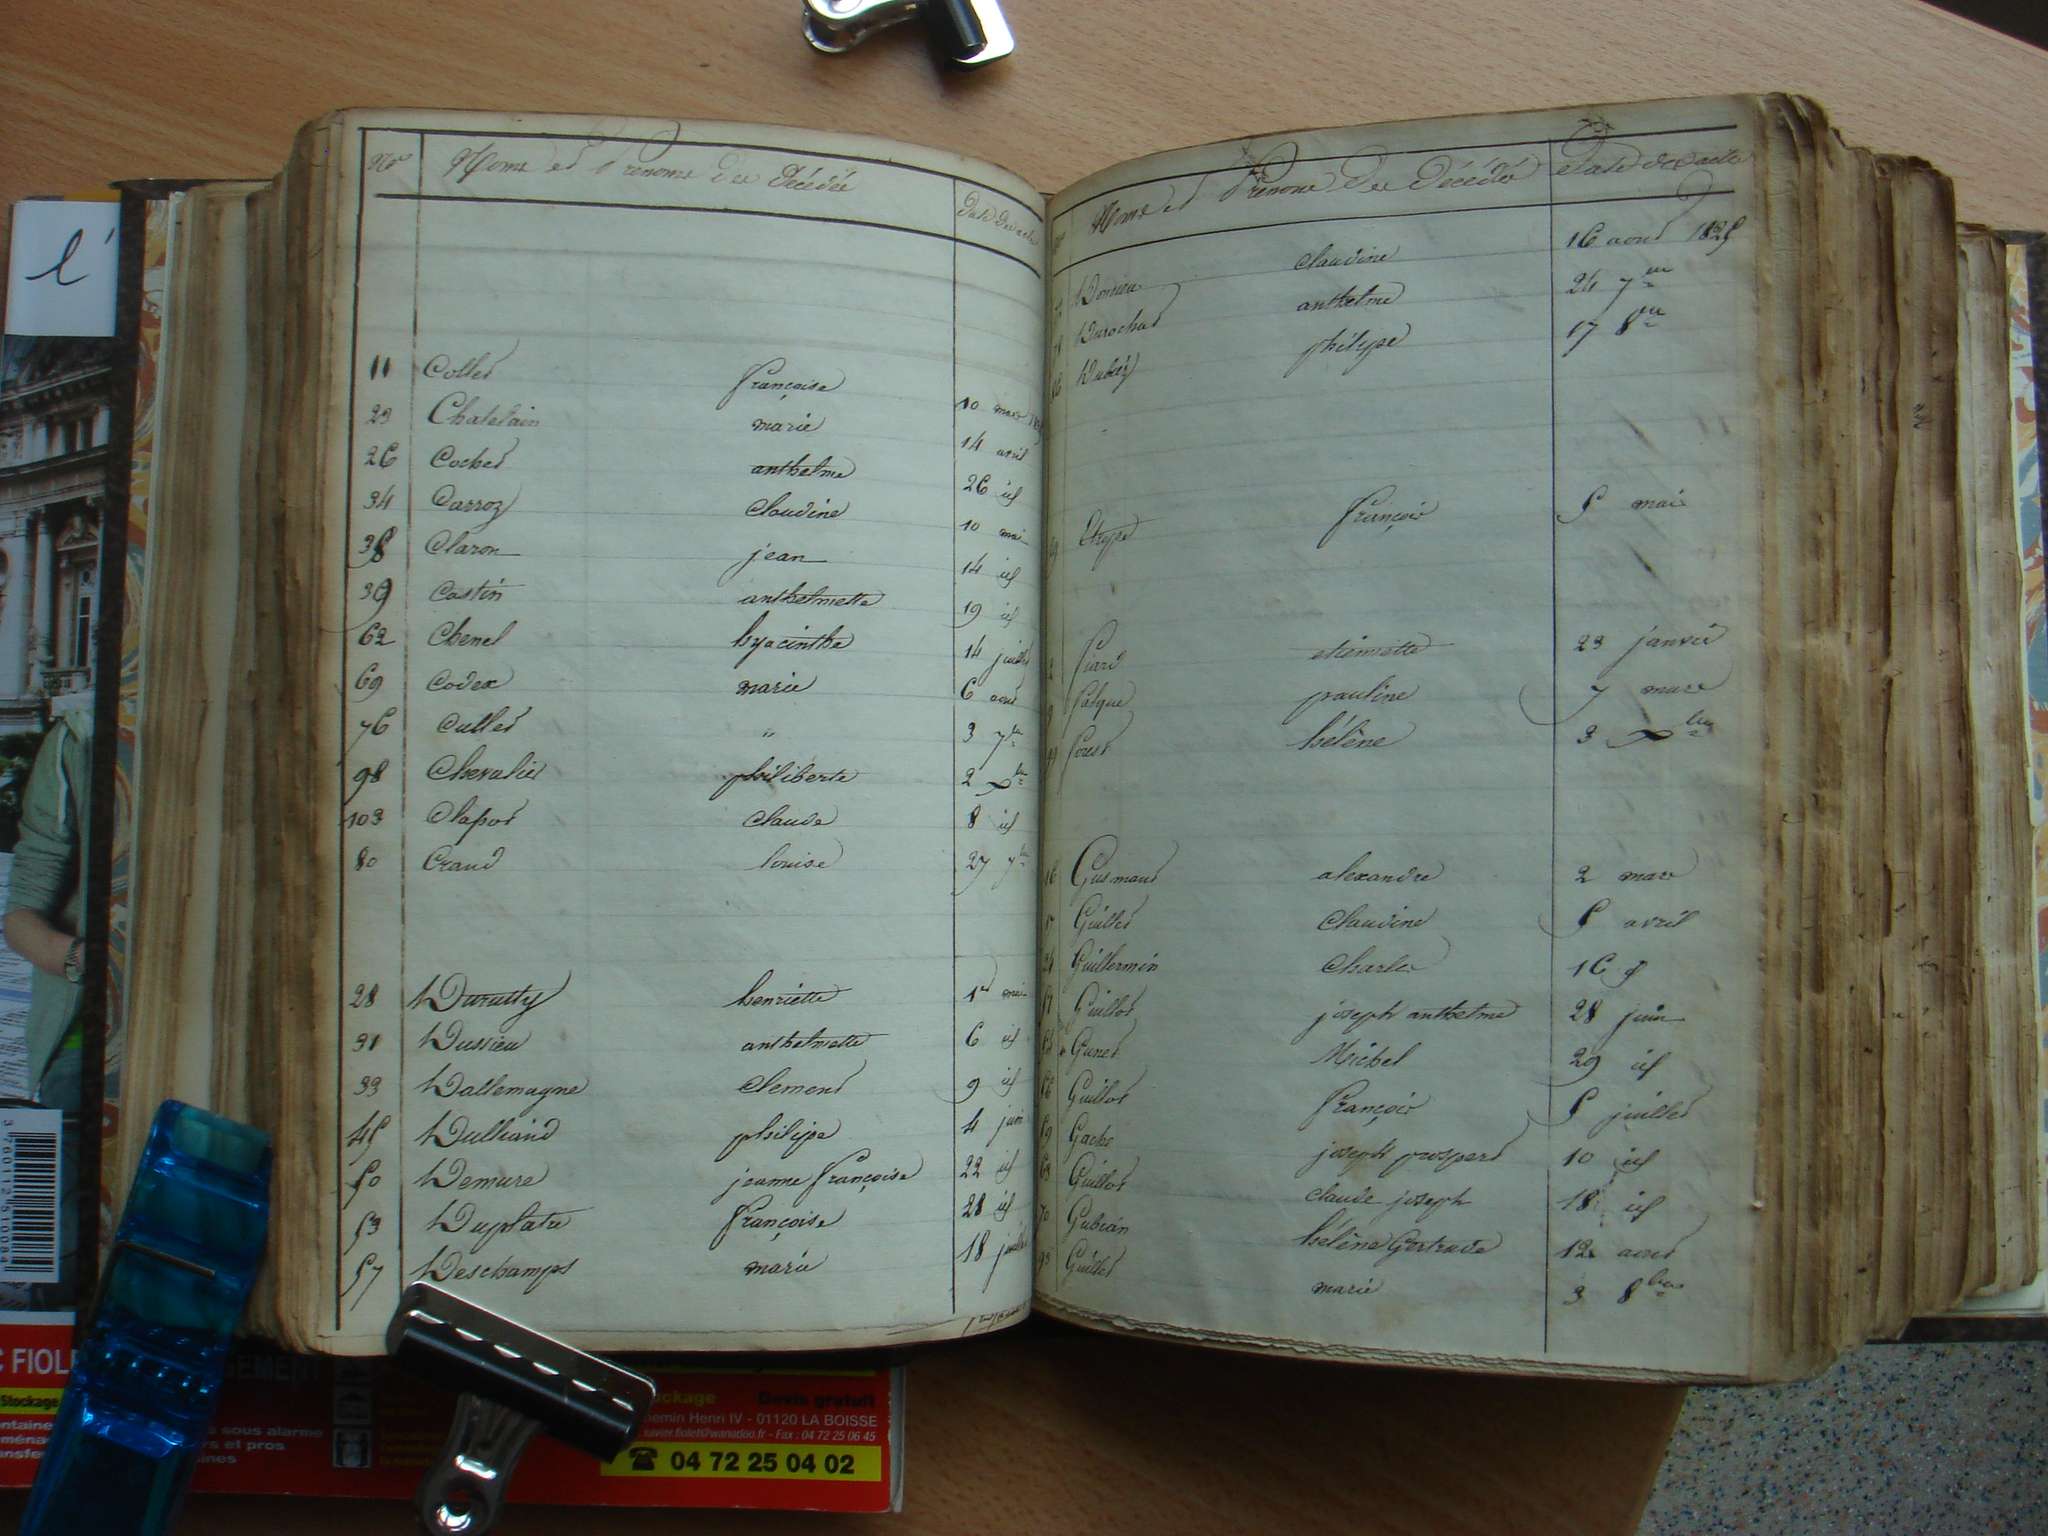 l'
Nos Noms et Prénoms des Décédés Date des actes
11 Collet françoise 10 mars
23 Chatelain marie 14 avril
26 Cochet anthelme 26 id
34 Carroz Claudine 10 mai
38 Claron jean 14 id
39 Castin anthelmette 19 id
62 Chenel hyacinthe 14 juillet
69 Codex marie 6 aout
76 Cullet " 3 7bre
98 Chevalier philiberte 2 xbre
103 Clapot Claude 8 id
80 Craud louise 27 7bre
28 Durutty henriette 1er mai
31 Dussieu anthelmette 6 id
33 Dallemagne Clement 9 id
45 Dulliand philipe 4 juin
50 Demure jeanne françoise 22 id
53 Duplatre françoise 28 id
57 Deschamps marie 18 juillet
Noms et Prénoms des Décédés Date des actes
claudine 16 aout 1825
Durochat anthelme 24 7bre
Dubiez philipe 17 8bre
Etype François 5 mai
etiennette 23 janvier
pauline 7 mars
hélène 3 xbre
16 Gusmand alexandre 2 mars
17 Guillet Claudine 5 avril
24 Guillermin Charles 16 id
Guillot joseph anthelme 28 juin
Gunet Michel 29 id
Guillot François 5 juillet
59 Gache joseph prosper 10 id
63 Guillot claude joseph 18 id
70 Gubian hélène Gertrude 12 aout
93 Guillet marie 3 8bre
3760112510084
C FIOL GEMENT
Stockage
sous alarme
rs et pros
ockage Devis gratuit
emin Henri IV - 01120 LA BOISSE
xavier.fiolet@wanadoo.fr - Fax : 04 72 25 06 45
☎ 04 72 25 04 02